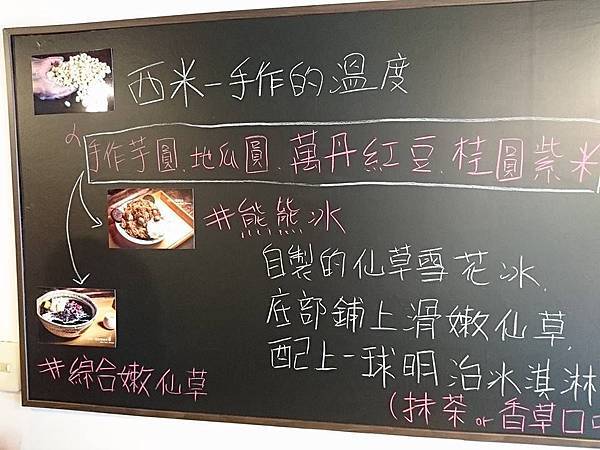 西米-手作的溫度
手作芋圓、地瓜圓、萬丹紅豆、桂圓紫米
#熊熊冰
自製的仙草雪花冰.
底部鋪上滑嫩仙草,
配上一球明治冰淇淋
#綜合嫩仙草
(抹茶 or 香草口